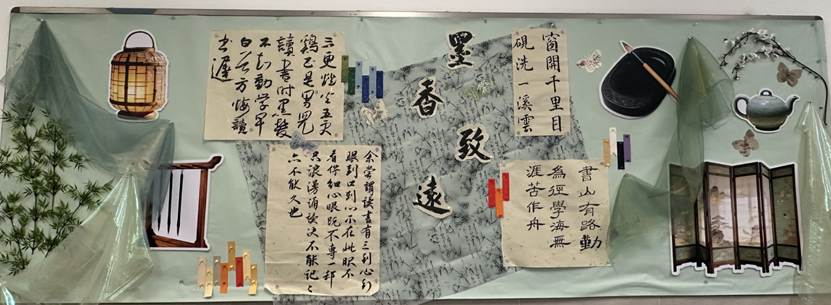 墨香致遠
窗開千里目
硯洗一溪雲
三更燈火五更
雞正是男兒
讀書時黑髮
不知勤學早
白首方悔讀
書遲
書山有路勤
為徑學海無
涯苦作舟
余嘗謂讀書有三到心到
眼到口到心不在此眼不
看仔細心眼既不專一却
只浪漫誦讀決不能記々
亦不能久也